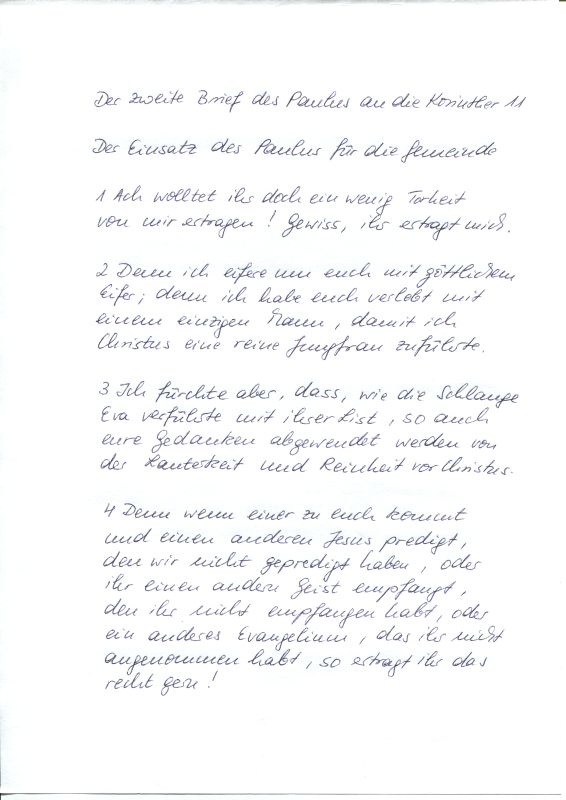 Der zweite Brief des Paulus an die Korinther 11
Der Einsatz des Paulus für die Gemeinde
1 Ach wolltet ihr doch ein wenig Torheit
von mir ertragen! Gewiss, ihr ertragt mich.
2 Denn ich eifere um euch mit göttlichem
Eifer; denn ich habe euch verlobt mit
einem einzigen Mann, damit ich
Christus eine reine Jungfrau zuführte.
3 Ich fürchte aber, dass, wie die Schlange
Eva verführte mit ihrer List, so auch
eure Gedanken abgewendet werden von
der Lauterkeit und Reinheit vor Christus.
4 Denn wenn einer zu euch kommt
und einen anderen Jesus predigt,
den wir nicht gepredigt haben, oder
ihr einen andern Geist empfangt,
den ihr nicht empfangen habt, oder
ein anderes Evangelium, das ihr nicht
angenommen habt, so ertragt ihr das
recht gern!